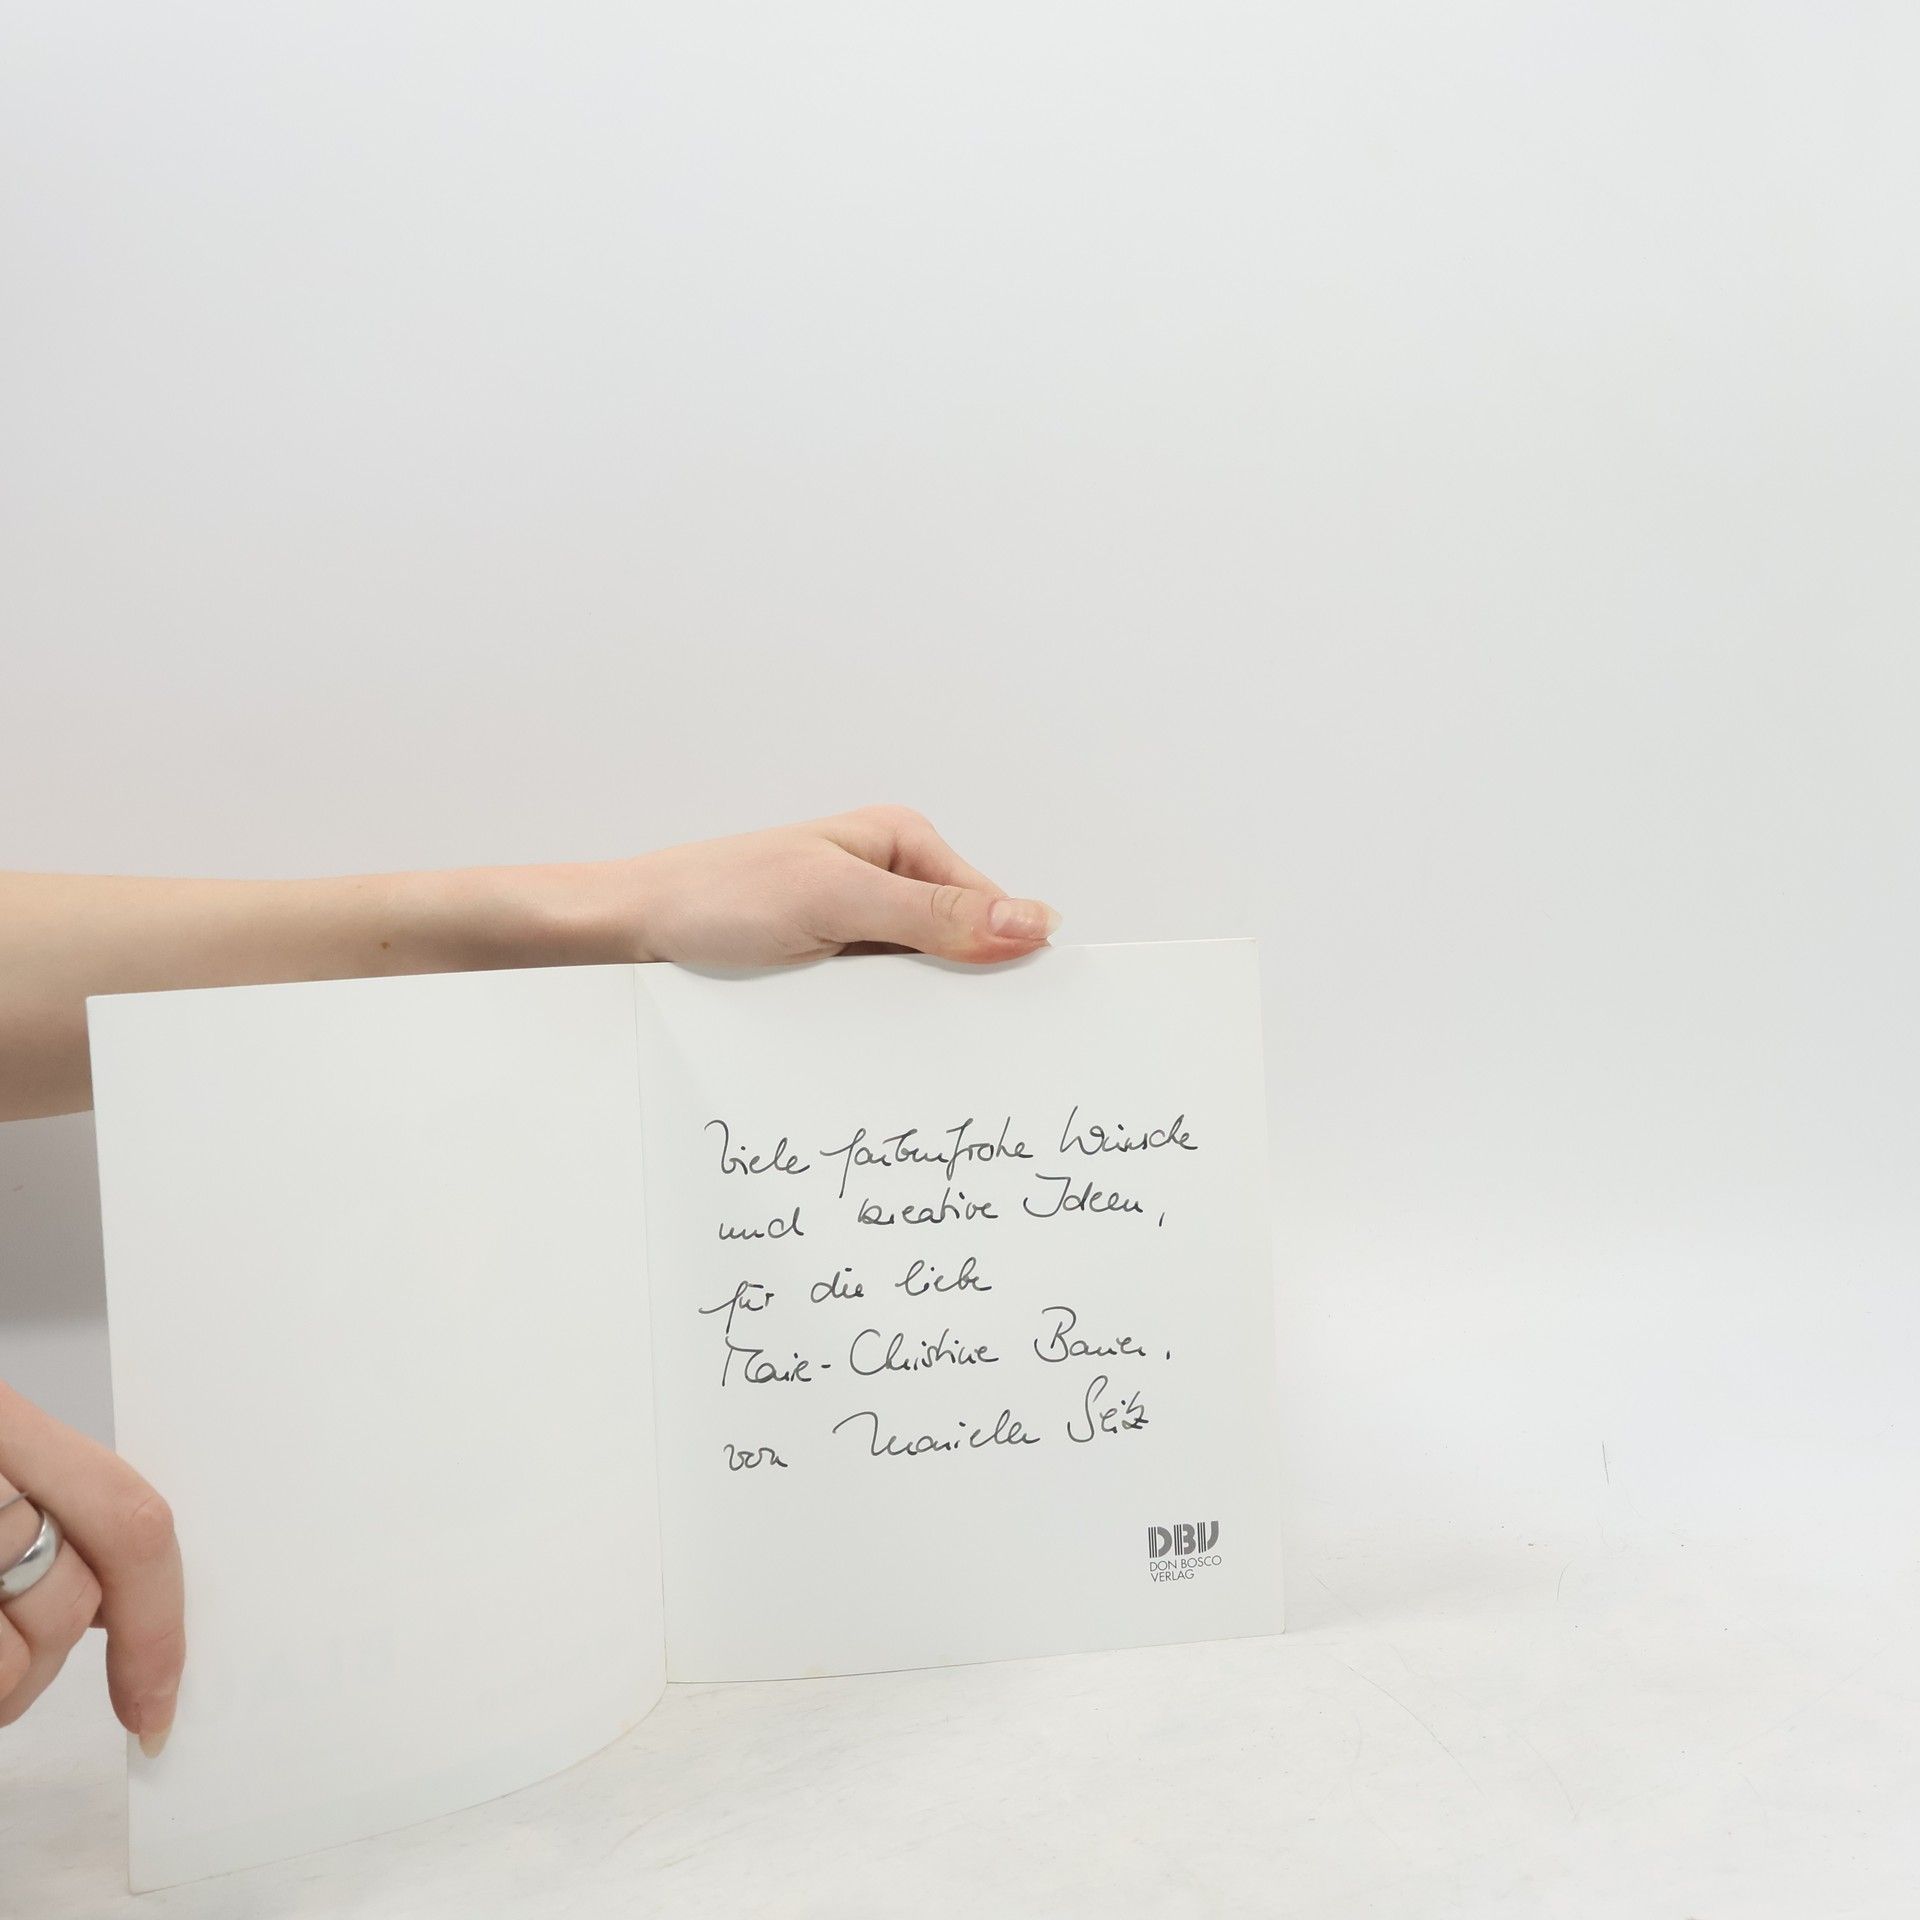 Viele farbenfrohe Wünsche
und kreative Ideen,
für die liebe
Marie-Christine Bauer,
von Mariella Seitz
DBV
DON BOSCO
VERLAG